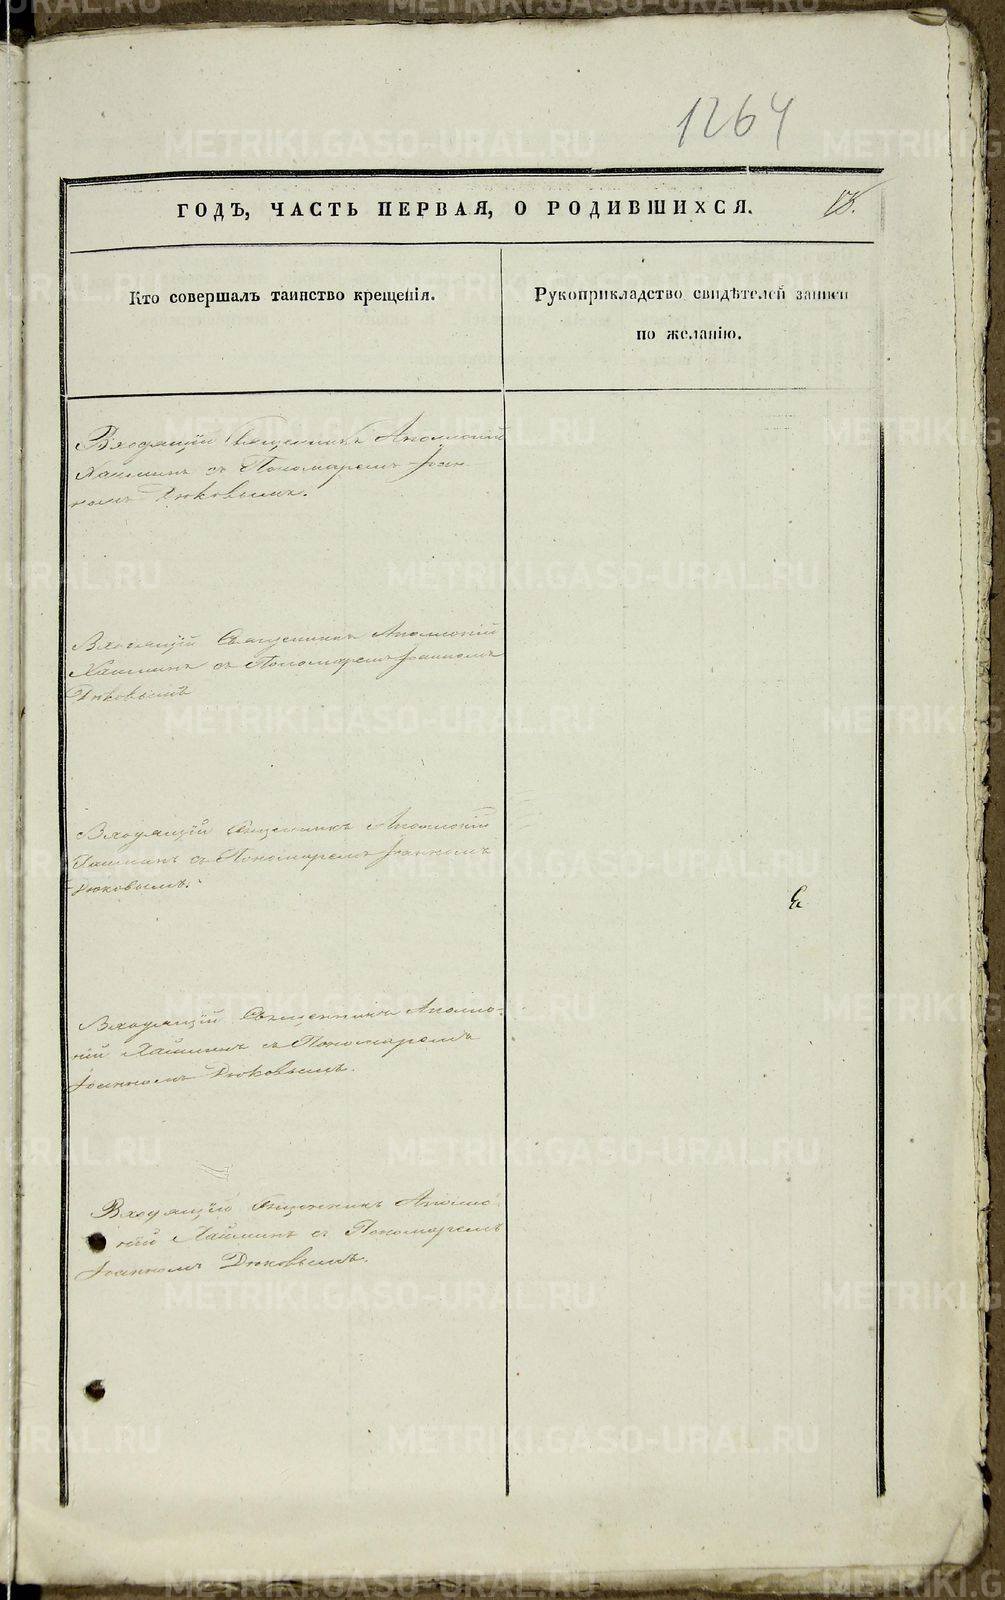 1264
ГОДЪ, ЧАСТЬ ПЕРВАЯ, О РОДИВШИХСЯ.
Кто совершалъ таинство крещенія.
Рукоприкладство свидѣтелей записи
по желанію.
Входящій Священникъ Аполлоній
Хлашинъ съ Пономаремъ Іоан-
номъ Дюковымъ.
Входящій Священникъ Аполлоній
Хлашинъ съ Пономаремъ Іоанномъ
Дюковымъ
Входящій Священникъ Аполлоній
съ Пономаремъ Іоанномъ
Дюковымъ.
Входящій Священникъ Аполло-
ній съ Пономаремъ
Іоанномъ Дюковымъ.
Входящій Священникъ Аполло-
ній съ Пономаремъ
Іоанномъ Дюковымъ.
METRIKI.GASO-URAL.RU